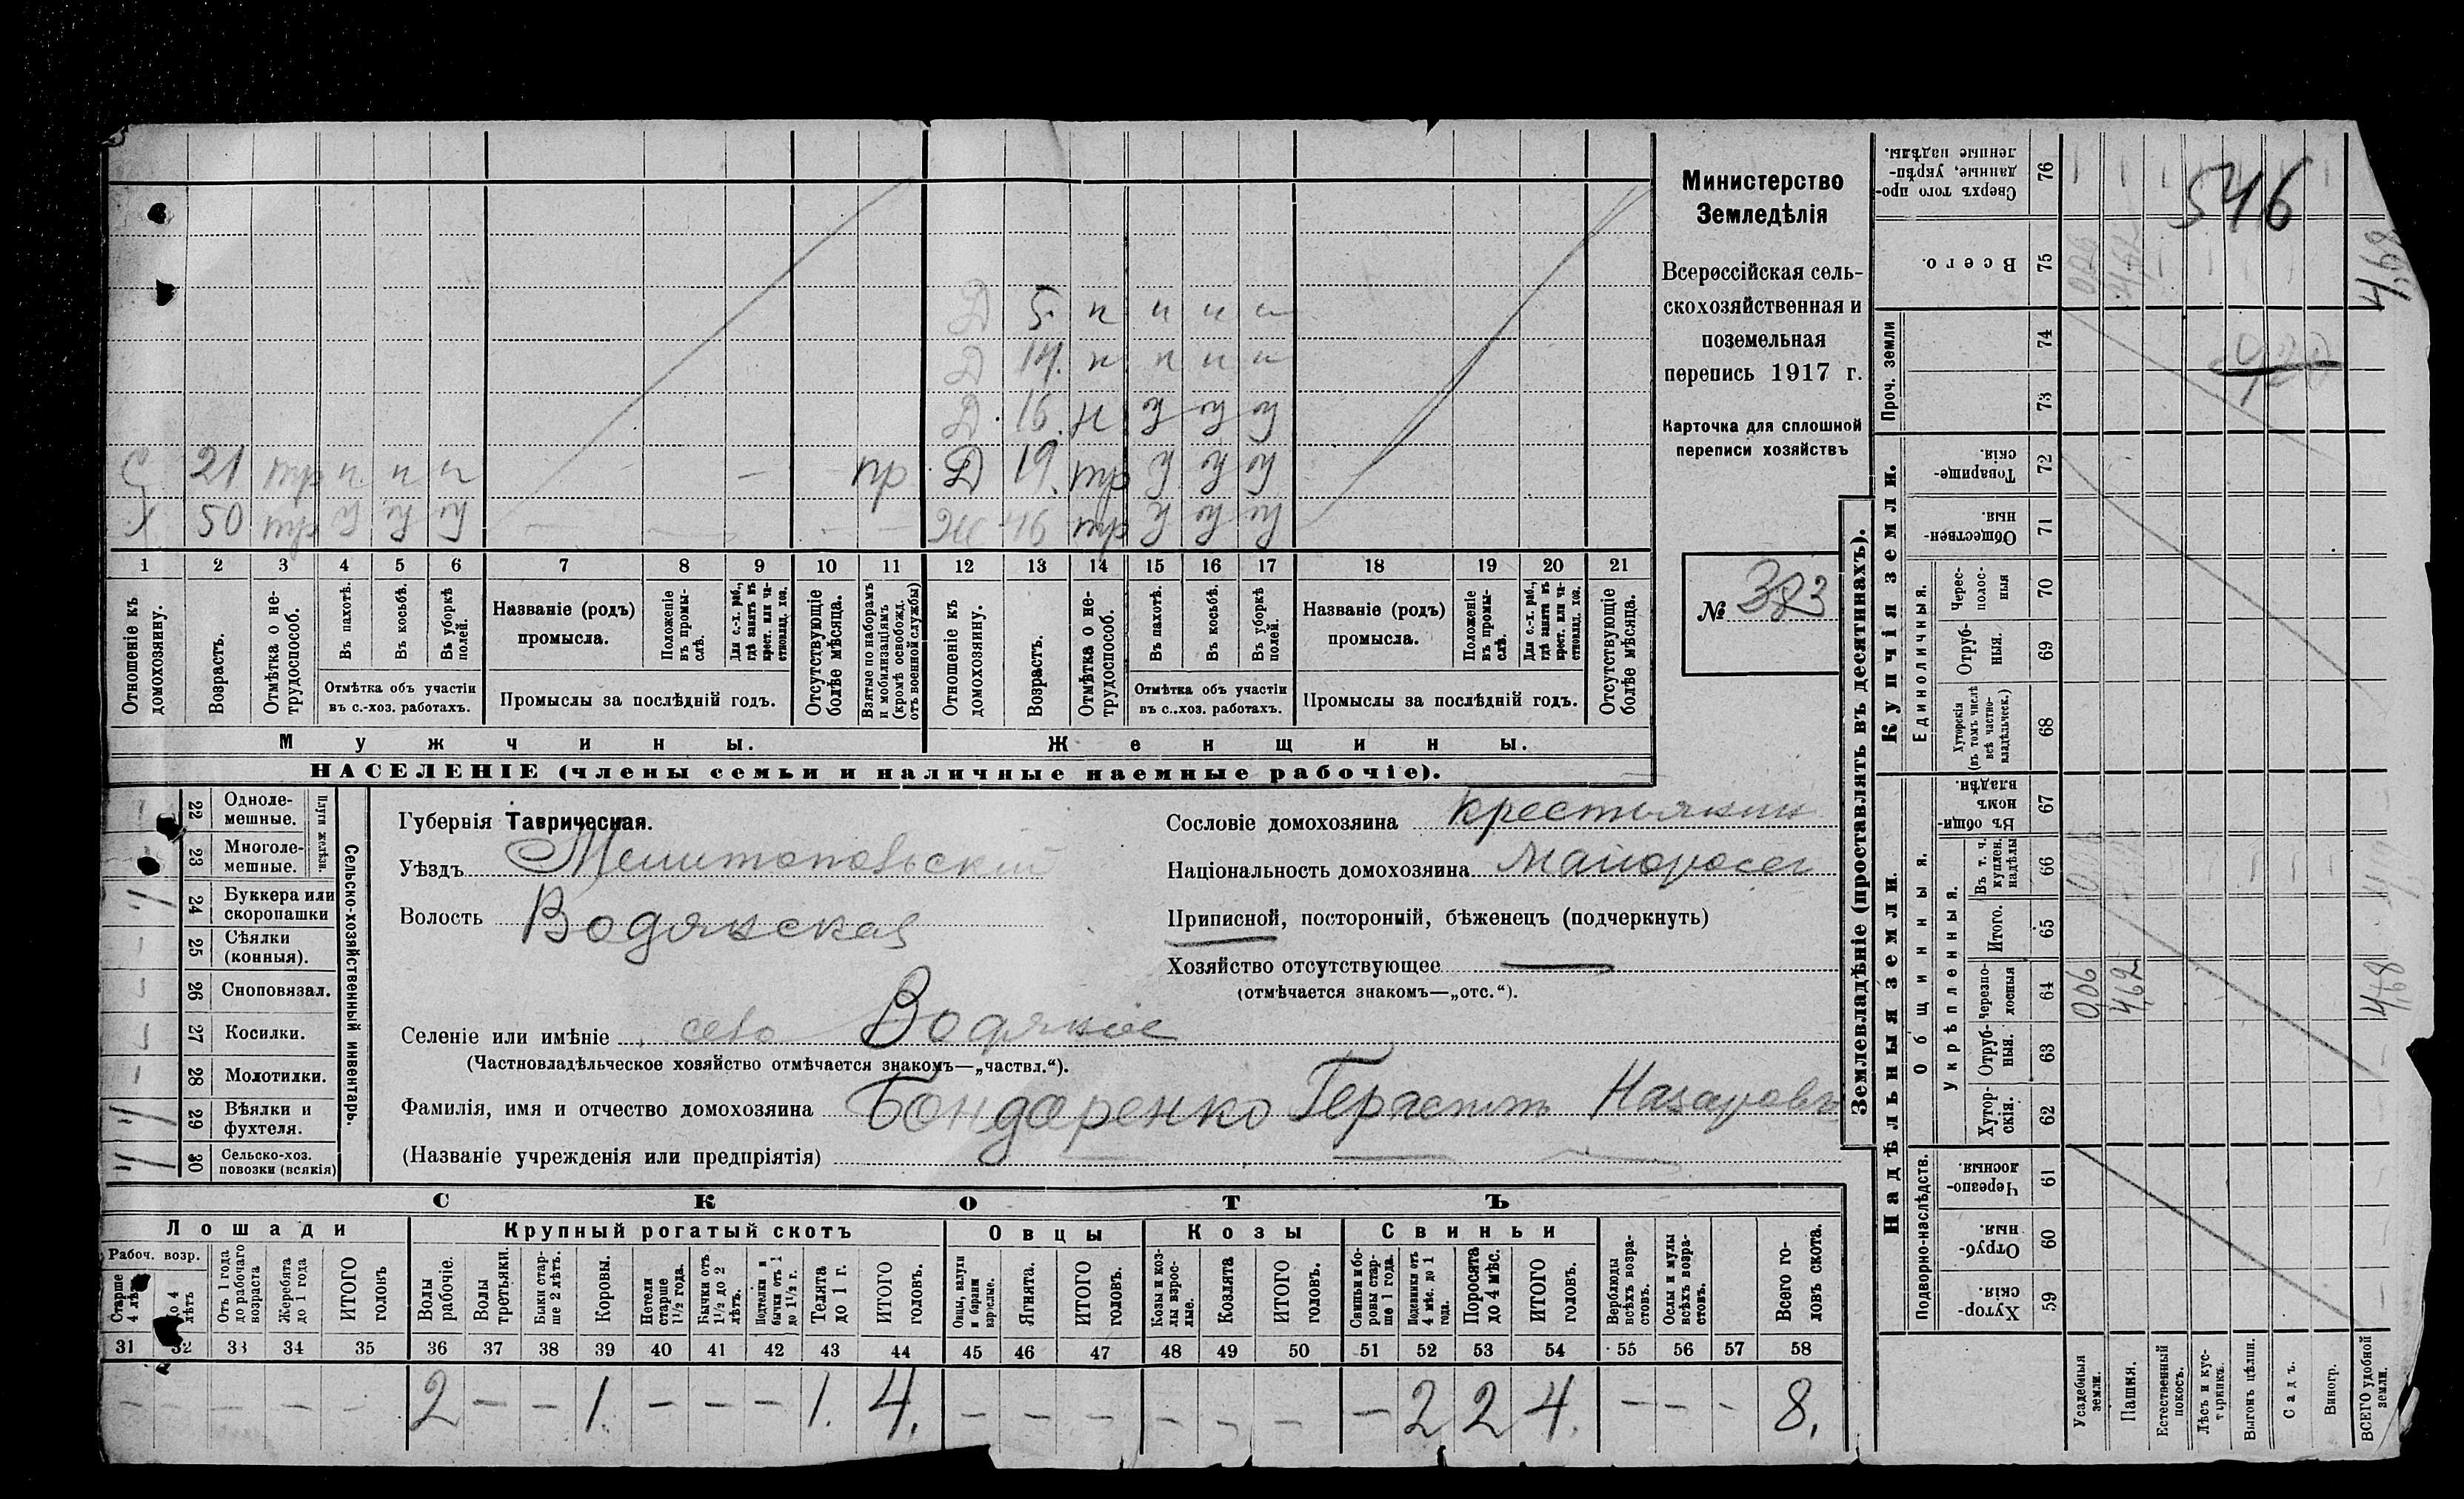 Министерство
Земледѣлія
Всероссійская сель-
скохозяйственная и
поземельная
перепись 1917 г.
Карточка для сплошной
переписи хозяйствъ
№ 383
546
Д 5 н н н н
Д 14 н н н н
Д 16 н
21 тр н н н пр Д 19 тр
Х 50 тр Ж 46 тр
1 2 3 4 5 6 7 8 9 10 11 12 13 14 15 16 17 18 19 20 21
Отношеніе къ домохозяину.
Возрастъ.
Отмѣтка о не-трудоспособ.
Въ пахотѣ.
Въ косьбѣ.
Въ уборкѣ полей.
Отмѣтка объ участіи
въ с.-хоз. работахъ.
Названіе (родъ)
промысла.
Положеніе въ промы-слѣ.
Для с.-х. раб., гдѣ занятъ въ крест. или ча-стновлад. хоз.
Промыслы за послѣдній годъ.
Отсутствующіе болѣе мѣсяца.
Взятые по наборамъ и мобилизаціямъ (кромѣ освобожд. отъ военной службы)
Отношеніе къ домохозяину.
Возрастъ.
Отмѣтка о не-трудоспособ.
Въ пахотѣ.
Въ косьбѣ.
Въ уборкѣ полей.
Отмѣтка объ участіи
въ с..хоз. работахъ.
Названіе (родъ)
промысла.
Положеніе въ промы-слѣ.
Для с.-х. раб., гдѣ занята въ крест. или ча-стновлад. хоз.
Промыслы за послѣдній годъ.
Отсутствующіе болѣе мѣсяца.
Мужчины. Женщины.
НАСЕЛЕНІЕ (члены семьи и наличные наемные рабочіе).
Сельско-хозяйственный инвентарь.
Плуги желѣзн.
22 Одноле-мешные.
23 Многоле-мешные.
24 Буккера или скоропашки 1
25 Сѣялки (конныя).
26 Сноповязал.
27 Косилки.
28 Молотилки.
29 Вѣялки и фухтеля. 1
30 Сельско-хоз. повозки (всякія) 1
Губернія Таврическая.
Уѣздъ Мелитопольскій
Волость Водянская
Селеніе или имѣніе село Водяное
(Частновладѣльческое хозяйство отмѣчается знакомъ—„частвл.“).
Фамилія, имя и отчество домохозяина Бондаренко Герасимъ Назаровъ
(Названіе учрежденія или предпріятія)
Сословіе домохозяина крестьянин
Національность домохозяина Малоросс
Приписной, посторонній, бѣженецъ (подчеркнуть)
Хозяйство отсутствующее
(отмѣчается знакомъ—„отс.“).
СКОТЪ
Лошади Крупный рогатый скотъ Овцы Козы Свиньи
Рабоч. возр.
Старше 4 лѣтъ
До 4 лѣтъ
Отъ 1 года до рабочаго возраста
Жеребята до 1 года
ИТОГО головъ
Волы рабочіе.
Волы третьяки.
Быки стар-ше 2 лѣтъ.
Коровы.
Нетели старше 1½ года.
Бычки отъ 1½ до 2 лѣтъ.
Подтелки и бычки отъ 1 до 1½ г.
Телята до 1 г.
ИТОГО головъ.
Овцы, валухи и бараны взрослые.
Ягнята.
ИТОГО головъ.
Козы и коз-лы взрос-лые.
Козлята
ИТОГО головъ.
Свиньи и бо-ровы стар-ше 1 года.
Подсвинки отъ 4 мѣс. до 1 года.
Поросята до 4 мѣс.
ИТОГО головъ.
Верблюды всѣхъ возра-стовъ.
Ослы и мулы всѣхъ возра-стовъ.
Всего го-ловъ скота.
31 32 33 34 35 36 37 38 39 40 41 42 43 44 45 46 47 48 49 50 51 52 53 54 55 56 57 58
– – – – – 2 – – 1. – – – 1. 4. – – – – – – – 2 2 4. – – – 8.
Землевладѣніе (проставлять въ десятинахъ).
Купчія земли.
Надѣльныя земли.
Сверхъ того про-данные, укрѣп-ленные надѣлы. 76
Всего. 75 0,06 4,62 4,68
Проч. земли 74 73
Товарище-скія. 72
Обществен-ныя. 71
Единоличныя.
Черес-полос-ныя 70
Отруб-ныя. 69
Хуторскія (въ томъ числѣ всѣ частно-владѣльческ.) 68
Общинныя.
Въ общин-номъ владѣн. 67
Укрѣпленныя.
Въ т. ч. куплен. надѣлы 66
Итого. 65
черезпо-лосныя 64 0,06 4,62 4,68
Отруб-ныя. 63
Хутор-скія. 62
Подворно-наслѣдств.
Черезпо-лосныя. 61
Отруб-ныя. 60
Хутор-скія. 59
Усадебныя земли.
Пашня.
Естественный покосъ.
Лѣсъ и кус-тарникъ.
Выгонъ цѣлин.
Садъ.
Виногр.
ВСЕГО удобной земли.